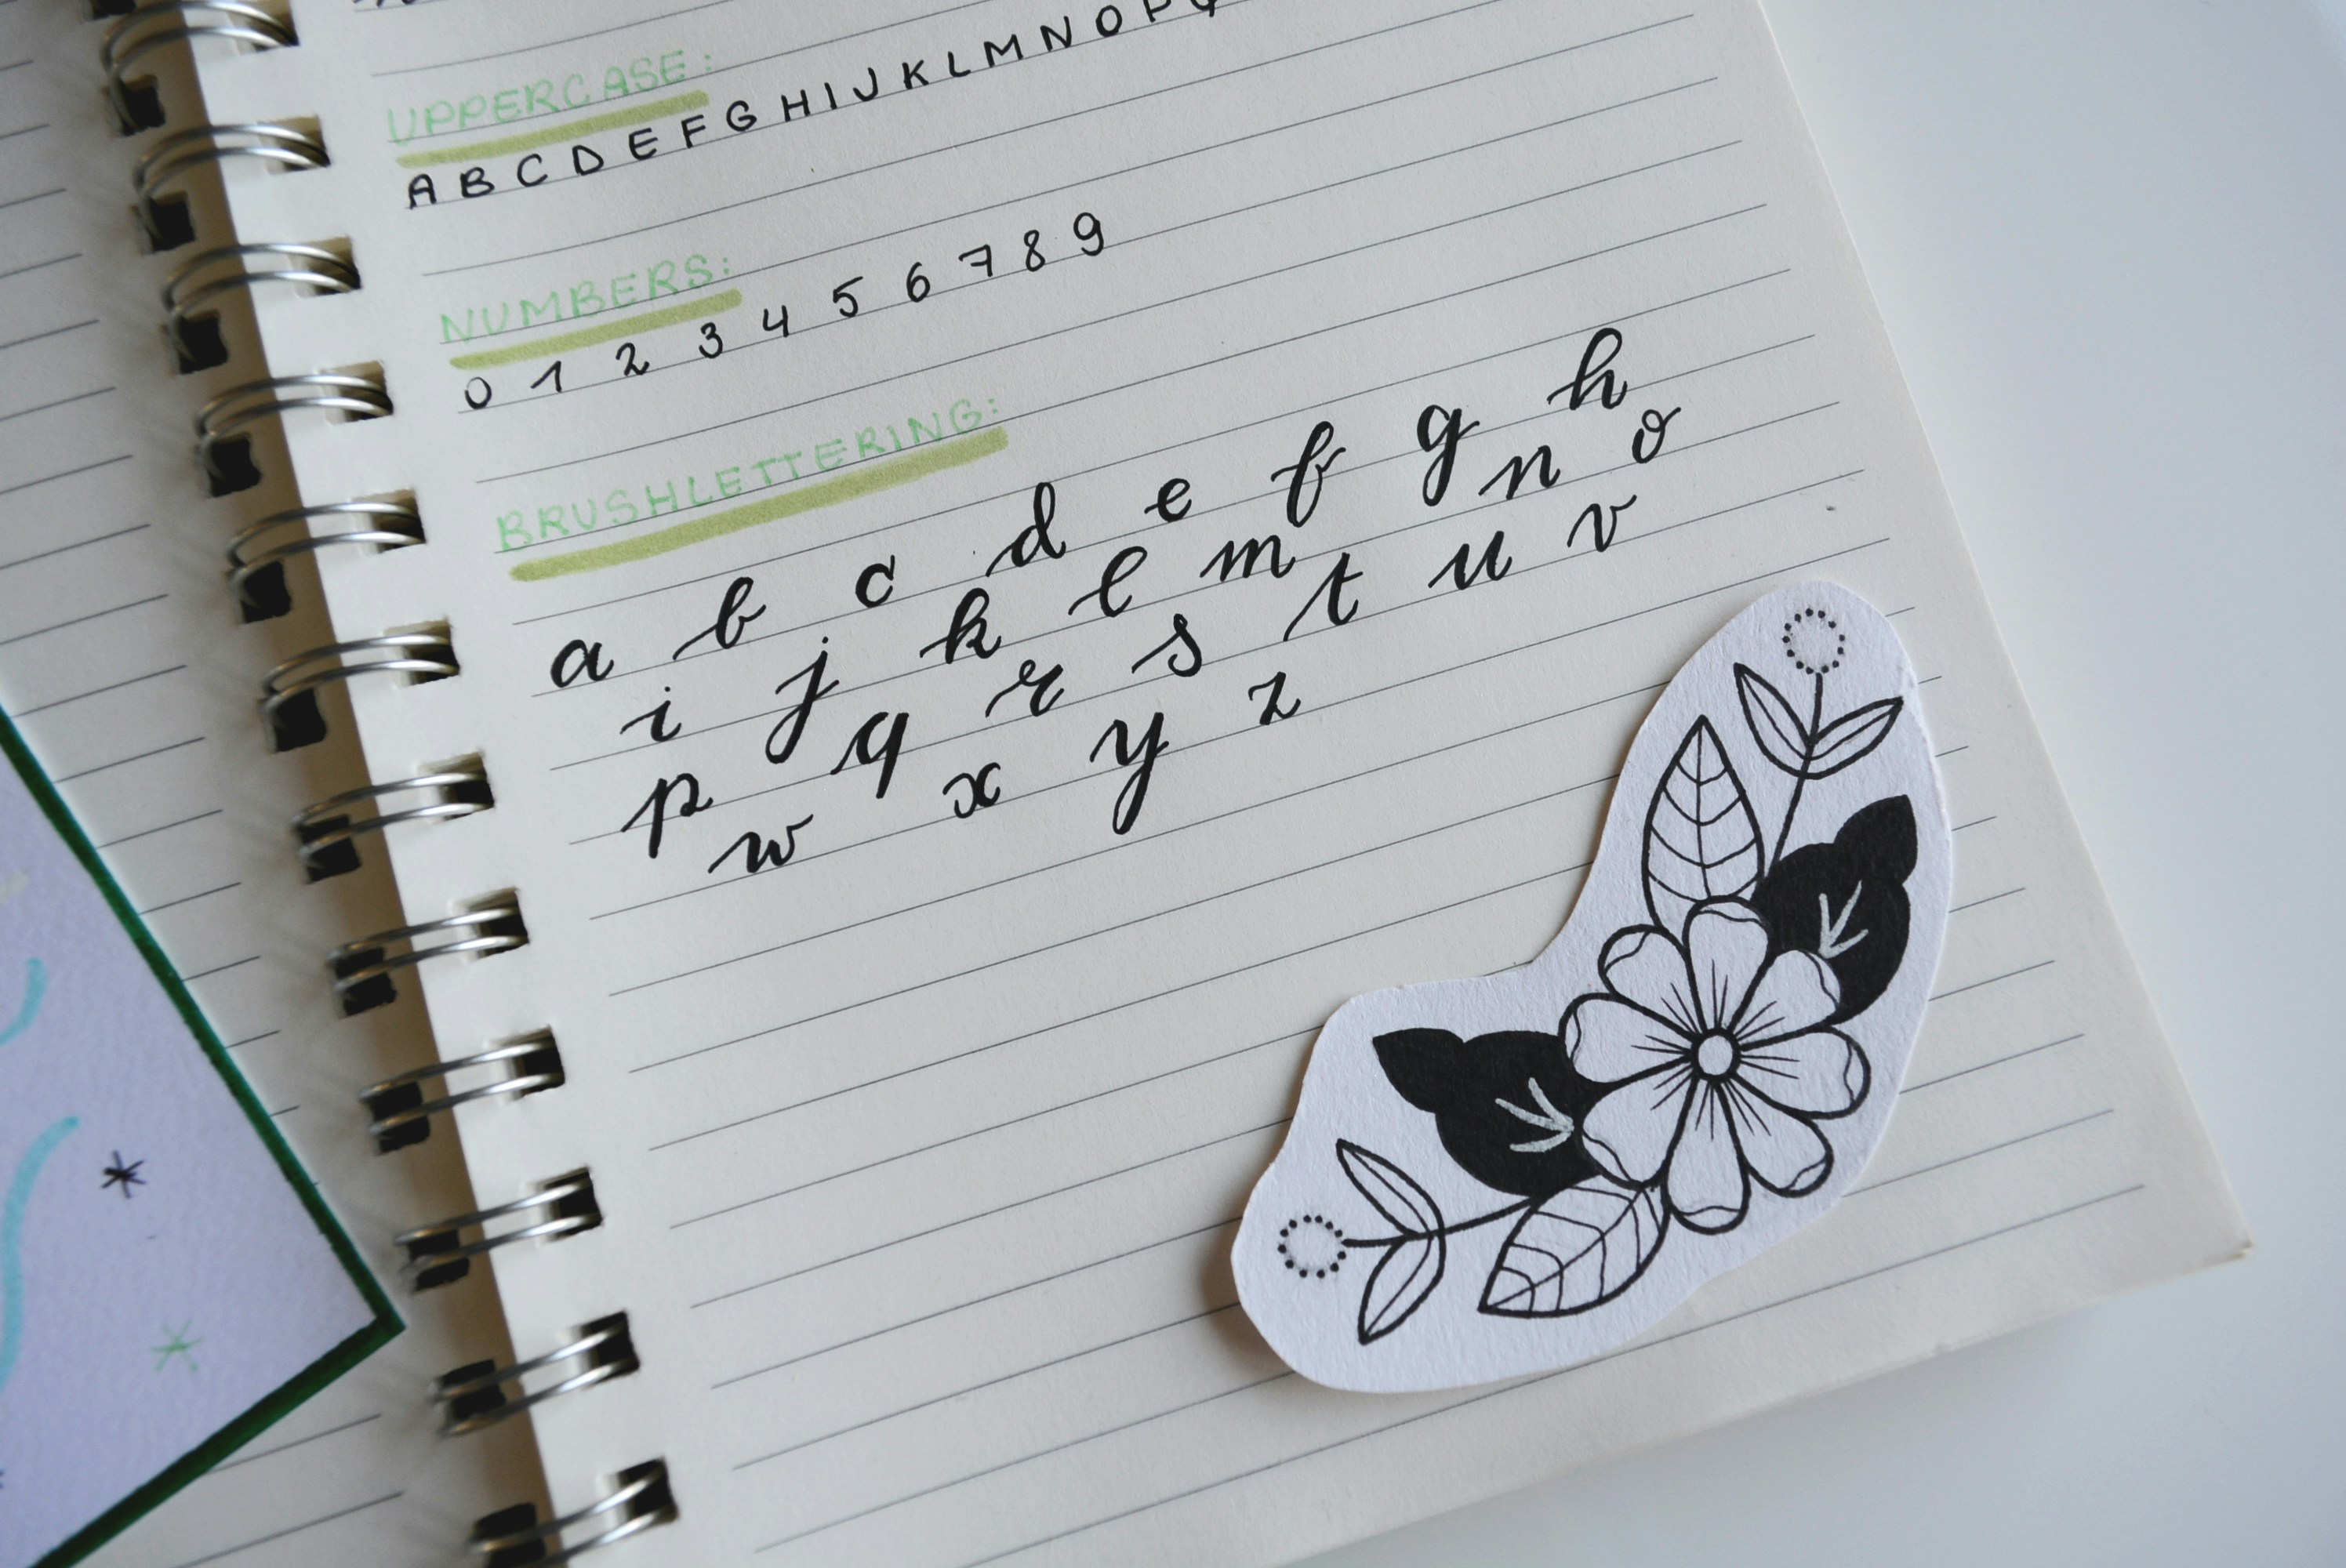 UPPERCASE:
A B C D E F G H I J K L M N O P
NUMBERS:
0 1 2 3 4 5 6 7 8 9
BRUSHLETTERING:
a b c d e f g h
i j k l m n o
p q r s t u v
w x y z